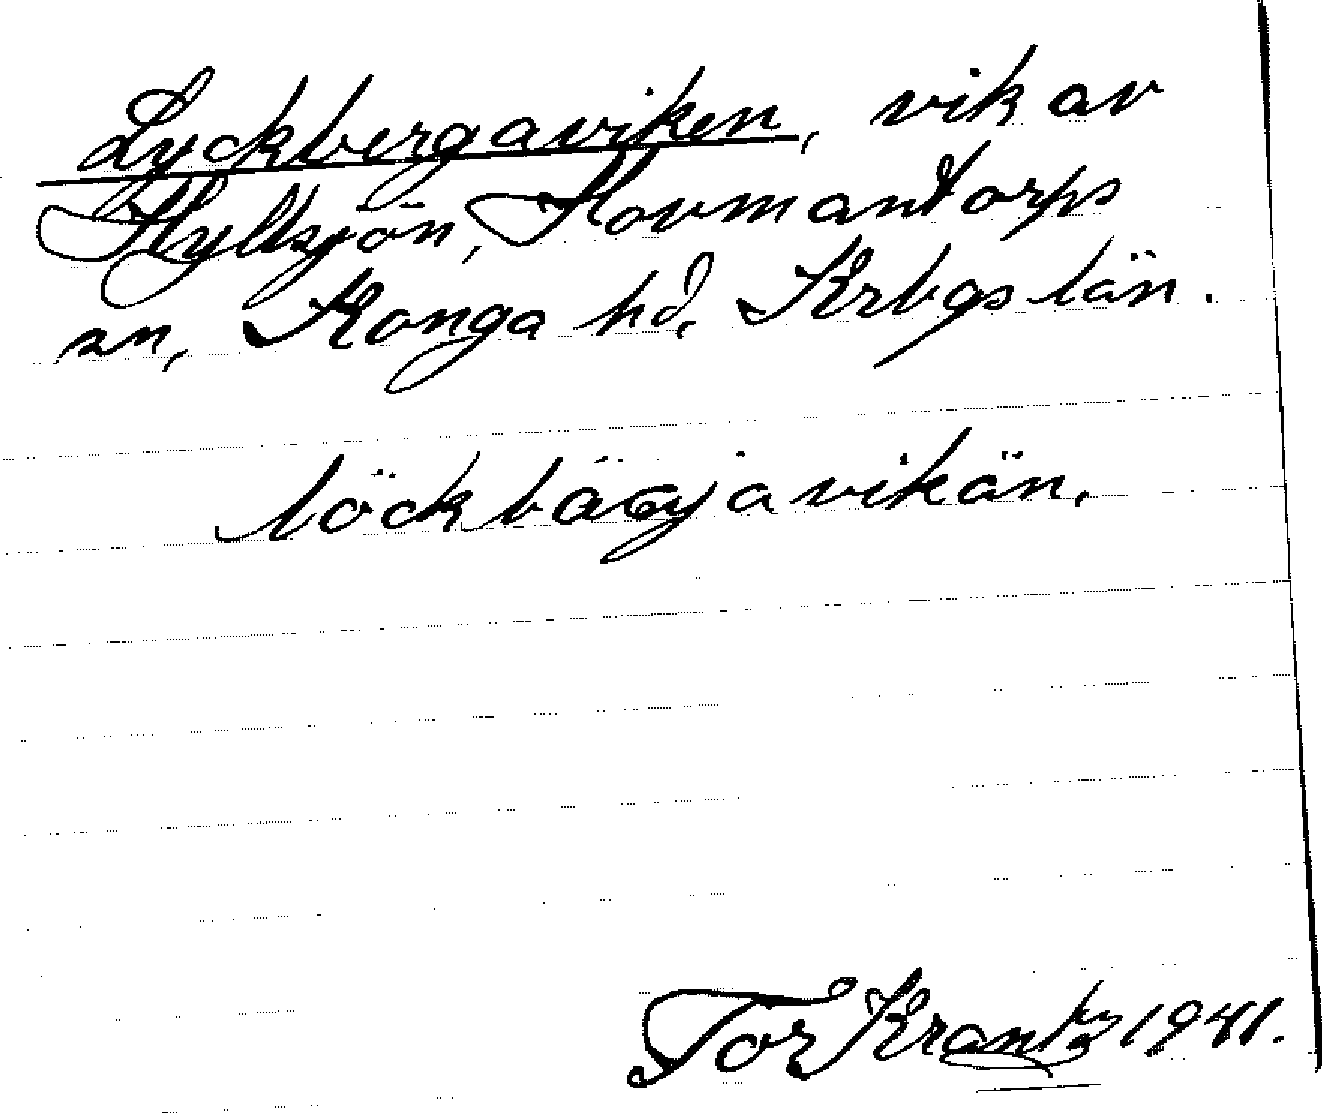 Lyckbergaviken, vik av
Hyltsjön, Hovmantorps
sn, Konga hd, Krbgs län.
löckbärjavikän.
Tor Krantz 1941.